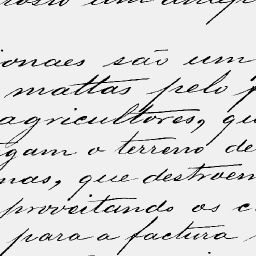 um
ionaes são um
mattas pelo
agricultores, qu
gam o terreno de
nas, que destroem
proveitando os c
para a factura